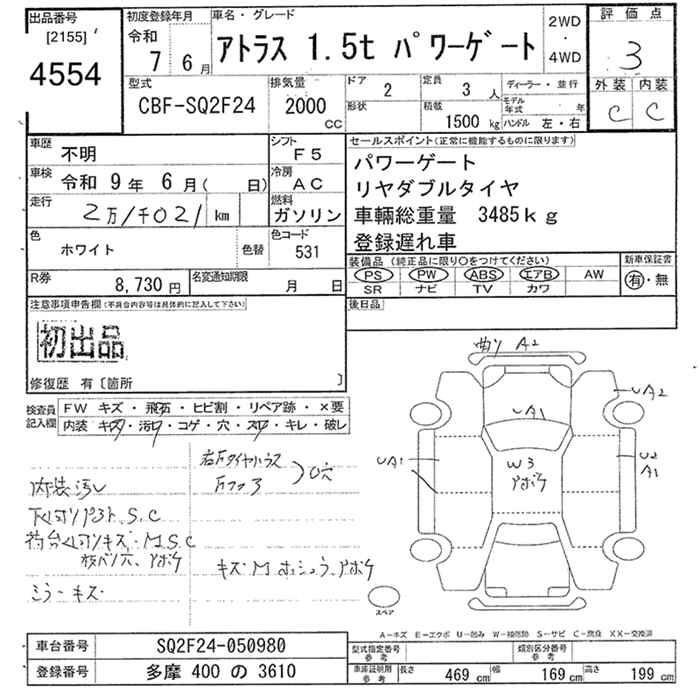 出品番号
[2155]
4554
初度登録年月
令和
7 6月
車名・グレード
アトラス 1.5t パワーゲート
2WD
・
4WD
評価点
3
外装 内装
C C
型式
CBF-SQ2F24
排気量
2000
CC
ドア
2
定員
3 人
形状
積載
1500 kg
ディーラー・並行
モデル年式 年
ハンドル 左・右
車歴
不明
シフト
F5
車検 令和 9年 6月( 日)
冷房
AC
走行
2万1千021 km
燃料
ガソリン
色
ホワイト
色替
色コード
531
R券
8,730円
名変通知期限
月 日
セールスポイント(正常に機能するものに限ります)
パワーゲート
リヤダブルタイヤ
車輛総重量 3485kg
登録遅れ車
装備品 (純正品に限り○をつけてください)
PS PW ABS エアB AW
SR ナビ TV カワ
新車保証書
有・無
後日品
注意事項申告欄(不具合内容等は具体的に記入して下さい)
初出品
修復歴 有〔箇所 〕
検査員記入欄
FW キズ・飛石・ヒビ割・リペア跡・×要
内装 キズ・汚れ・コゲ・穴・スレ・キレ・破レ
右左タイヤハウス
穴
内装汚レ
下廻りサビ、S、C
キズ・M
アポケ
ミラーキズ
曲り A2
UA2
UA1
UA1
U2
A1
W3
アポケ
スペア
A−キズ E−エクボ U−凹み W−補修跡 S−サビ C−腐食 XX−交換済
車台番号
SQ2F24-050980
登録番号
多摩 400 の 3610
型式指定番号
参考
類別区分番号
参考
車庫証明用
参考
長さ 469 cm 幅 169 cm 高さ 199 cm